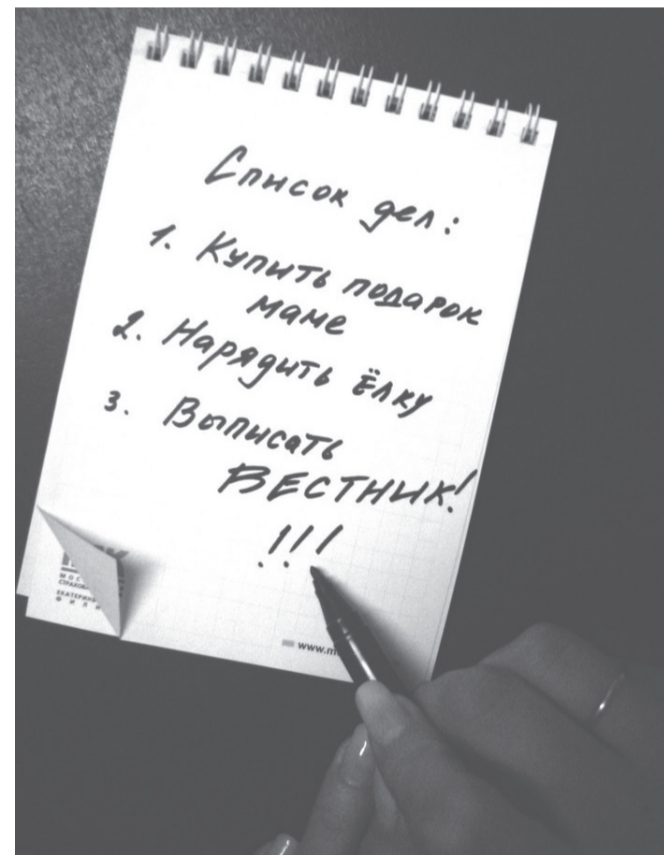 Список дел:
1. Купить подарок
маме
2. Нарядить ёлку
3. Выписать
ВЕСТНИК!
!!!